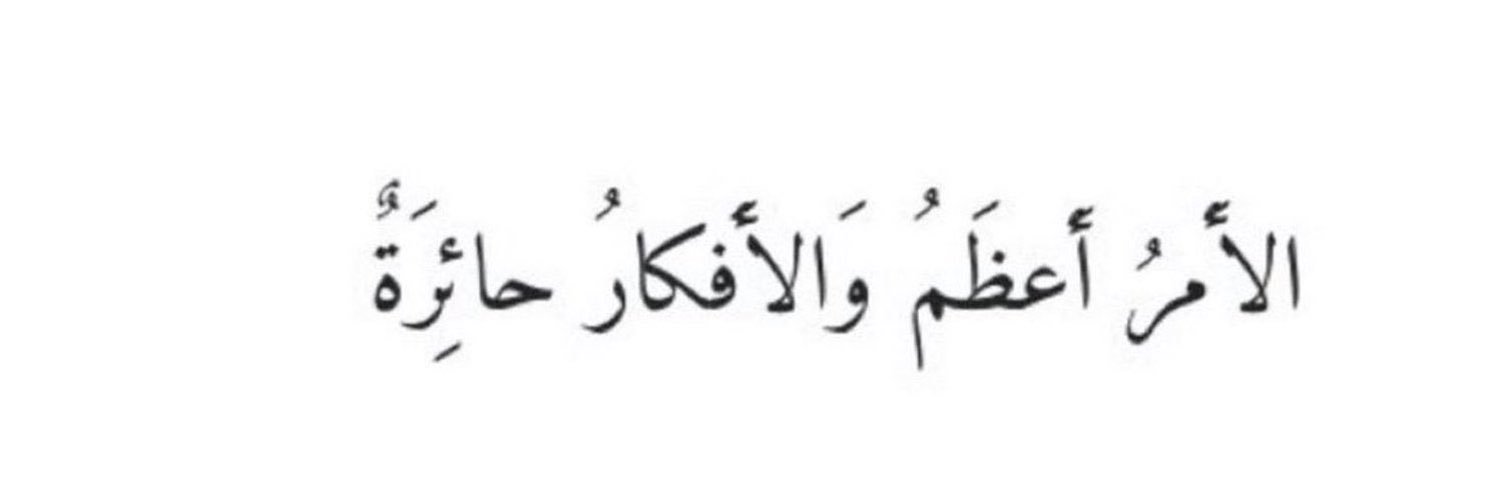 الأمرُ أعظَمُ وَالأفكارُ حائِرَةٌ